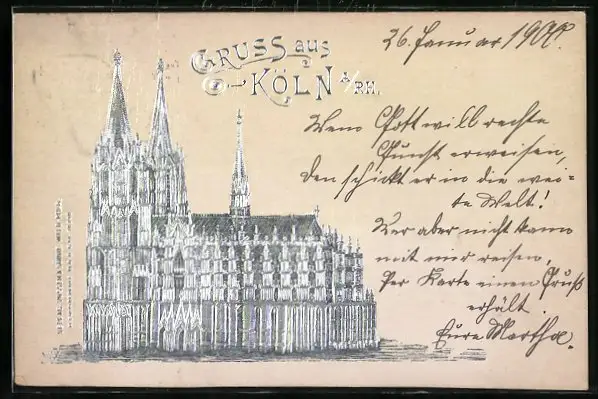 26. Januar 1900.
GRUSS aus
KÖLN a/RH.
Wem Gott will rechte
Gunst erweisen,
den schickt er in die wei=
te Welt!
Wer aber nicht kann
mit mir reisen,
Per Karte einen Gruß
erhält.
Eure Martha.